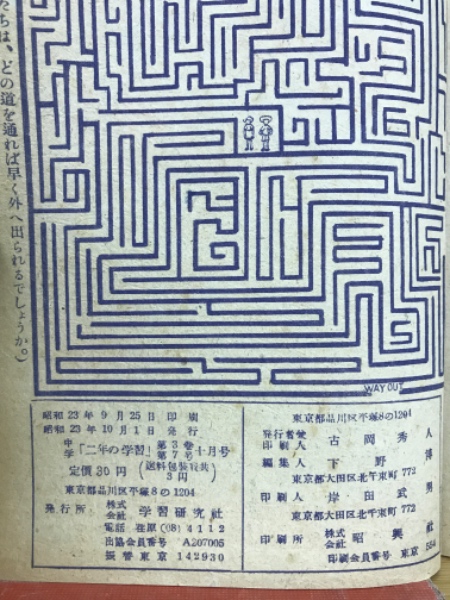 たちは、どの道を通れば早く外へ出られるでしょうか。)
WAY OUT
昭和23年9月25日 印刷
昭和23年10月1日 発行
中学「二年の学習」第3巻第7号 十月号
定價30円(送料包装費共3円)
東京都品川区平塚8の1204
発行所 株式会社 学習研究社
電話 荏原(08)4112
出協会員番号 A207005
振替東京 142930
東京都品川区平塚8の1204
発行者兼印刷人 古岡秀人
編集人 下野博
東京都大田区北千束町772
印刷人 岸田武男
東京都大田区北千束町772
印刷所 株式会社 昭興社
印刷会員番号 東京